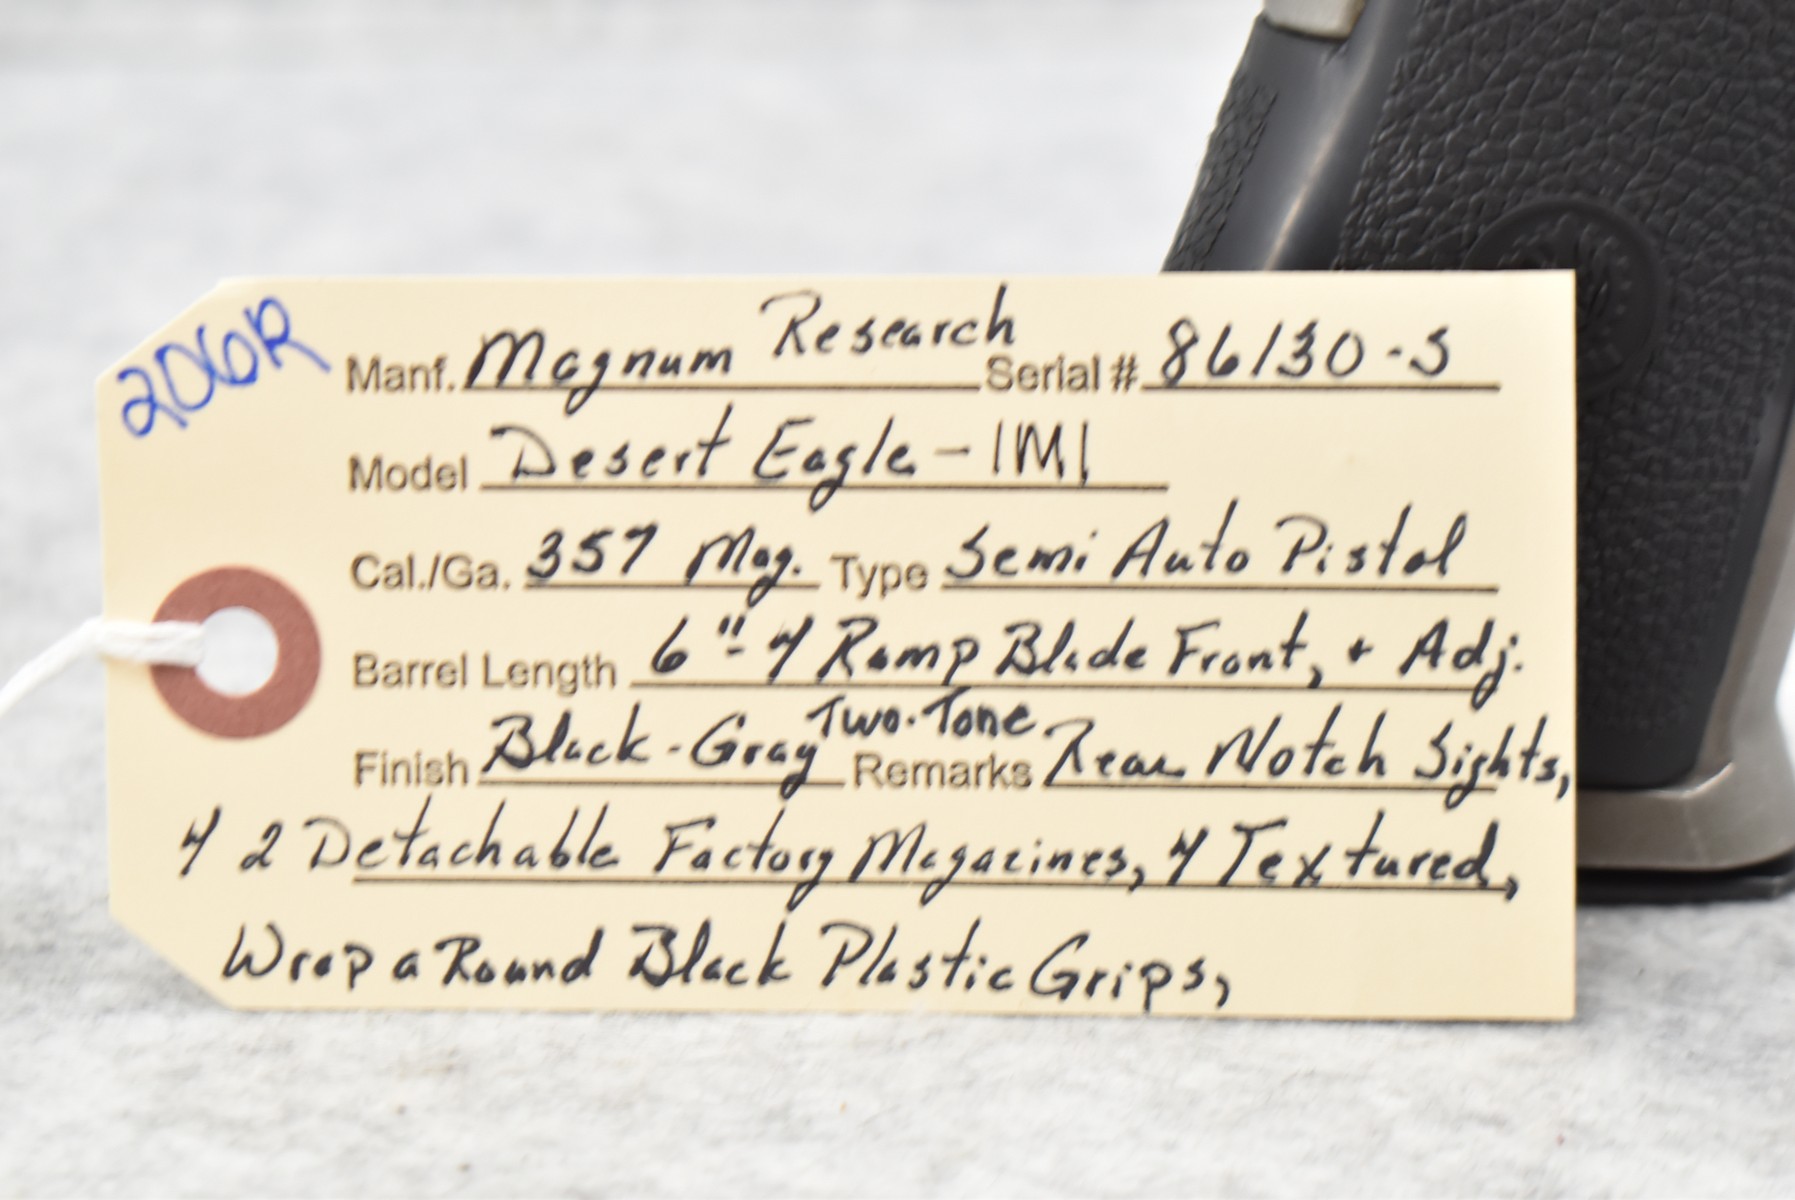 206R
Manf. Magnum Research Serial # 86130-S
Model Desert Eagle - IMI
Cal./Ga. 357 Mag. Type Semi Auto Pistol
Barrel Length 6"- y Ramp Blade Front, + Adj.
Finish Black-Gray Two-Tone Remarks Rear Notch Sights,
y 2 Detachable Factory Magazines, y Textured,
Wrap a Round Black Plastic Grips,